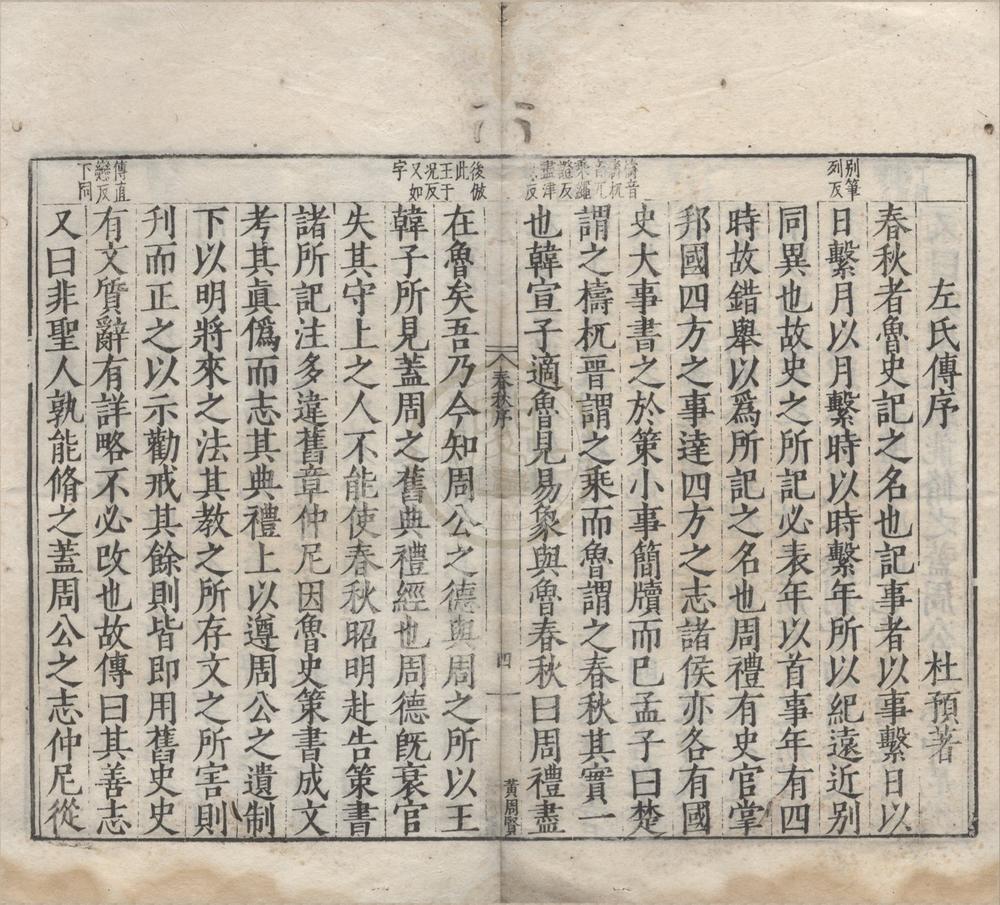 左氏傳序　杜預著
春秋者魯史記之名也記事者以事繫日以
日繫月以月繫時以時繫年所以紀遠近别
同異也故史之所記必表年以首事年有四
時故錯舉以爲所記之名也周禮有史官掌
邦國四方之事達四方之志諸侯亦各有國
史大事書之於策小事簡牘而已孟子曰楚
謂之檮杌晉謂之乘而魯謂之春秋其實一
也韓宣子適魯見易象與魯春秋曰周禮盡
别筆
列反
檮音
乘繩
證反
盡津
春秋序
四
黃周賢
在魯矣吾乃今知周公之德與周之所以王
韓子所見蓋周之舊典禮經也周德旣衰官
失其守上之人不能使春秋昭明赴告策書
諸所記注多違舊章仲尼因魯史策書成文
考其眞僞而志其典禮上以遵周公之遺制
下以明將來之法其教之所存文之所害則
刋而正之以示勸戒其餘則皆即用舊史史
有文質辭有詳略不必改也故傳曰其善志
又曰非聖人孰能脩之蓋周公之志仲尼從
後倣
此
王于
况反
又如
字
傳直
戀反
下同